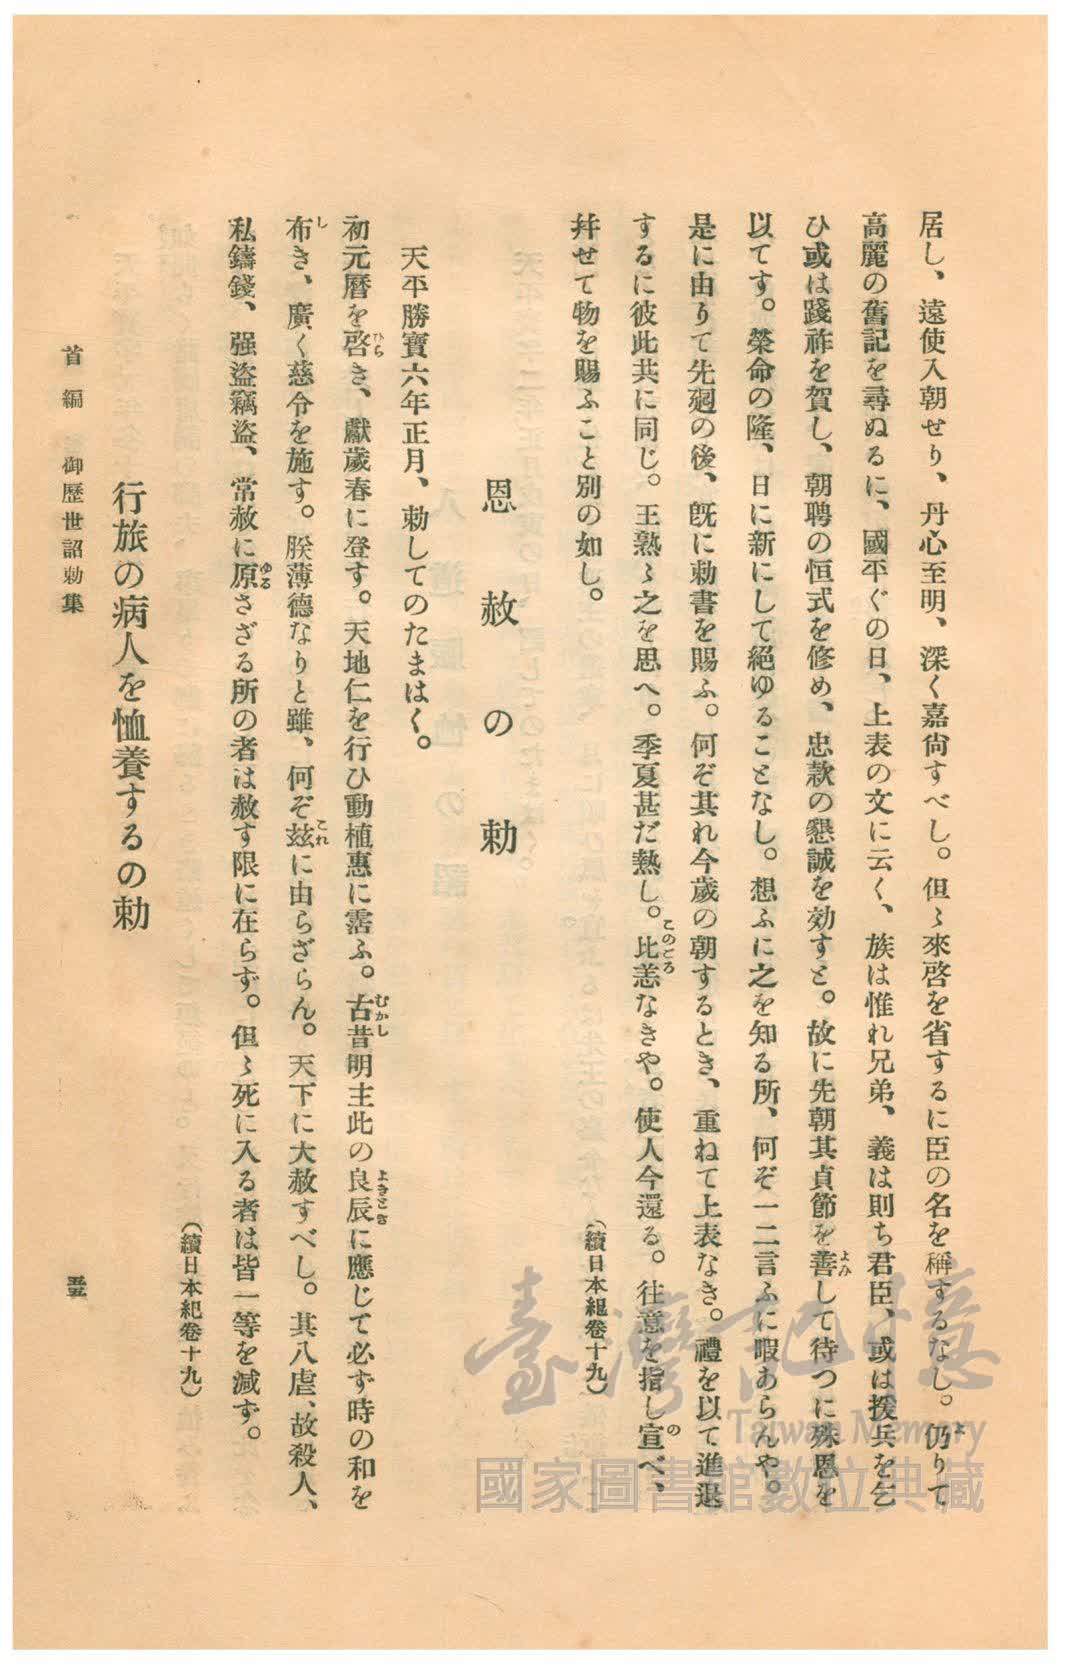 居し、遠使入朝せり、丹心至明、深く嘉尙すべし。但〻來啓を省するに臣の名を稱するなし。仍りて
高麗の舊記を尋ぬるに、國平ぐの日、上表の文に云く、族は惟れ兄弟、義は則ち君臣、或は援兵を乞
ひ或は踐祚を賀し、朝聘の恒式を修め、忠款の懇誠を効すと。故に先朝其貞節を善して待つに殊恩を
以てす。榮命の隆、日に新にして絕ゆることなし。想ふに之を知る所、何ぞ一二言ふに暇あらんや。
是に由りて先廻の後、旣に勅書を賜ふ。何ぞ其れ今歲の朝するとき、重ねて上表なき。禮を以て進退
するに彼此共に同じ。王熟〻之を思へ。季夏甚だ熱し。比恙なきや。使人今還る。往意を指し宣べ、
幷せて物を賜ふこと別の如し。
（續日本紀卷十九）
恩赦の勅
天平勝寶六年正月、勅してのたまはく。
初元曆を啓き、獻歲春に登す。天地仁を行ひ動植惠に霑ふ。古昔明主此の良辰に應じて必ず時の和を
布き、廣く慈令を施す。朕薄德なりと雖、何ぞ玆に由らざらん。天下に大赦すべし。其八虐、故殺人、
私鑄錢、强盜竊盜、常赦に原さざる所の者は赦す限に在らず。但〻死に入る者は皆一等を減ず。
（續日本紀卷十九）
行旅の病人を恤養するの勅
首編 御歷世詔勅集
五五
臺灣記憶
Taiwan Memory
國家圖書館數位典藏